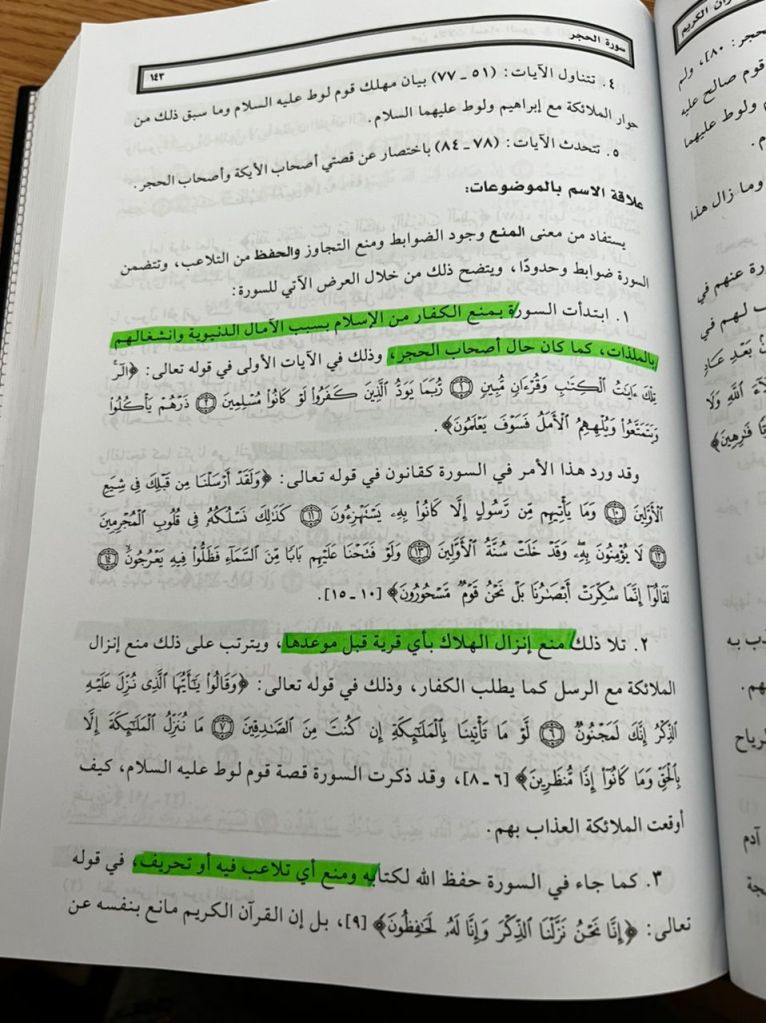 سورة الحجر
١٤٣
٤. تتناول الآيات: (٥١ ـ ٧٧) بيان مهلك قوم لوط عليه السلام وما سبق ذلك من
حوار الملائكة مع إبراهيم ولوط عليهما السلام.
٥. تتحدث الآيات: (٧٨ ـ ٨٤) باختصار عن قصتي أصحاب الأيكة وأصحاب الحجر.
علاقة الاسم بالموضوعات:
يستفاد من معنى المنع وجود الضوابط ومنع التجاوز والحفظ من التلاعب، وتتضمن
السورة ضوابط وحدودًا، ويتضح ذلك من خلال العرض الآتي للسورة:
١. ابتدأت السورة بمنع الكفار من الإسلام بسبب الآمال الدنيوية وانشغالهم
بالملذات، كما كان حال أصحاب الحجر، وذلك في الآيات الأولى في قوله تعالى: ﴿الٓرۚ
تِلۡكَ ءَايَٰتُ ٱلۡكِتَٰبِ وَقُرۡءَانٖ مُّبِينٖ ١ رُّبَمَا يَوَدُّ ٱلَّذِينَ كَفَرُواْ لَوۡ كَانُواْ مُسۡلِمِينَ ٢ ذَرۡهُمۡ يَأۡكُلُواْ
وَيَتَمَتَّعُواْ وَيُلۡهِهِمُ ٱلۡأَمَلُۖ فَسَوۡفَ يَعۡلَمُونَ﴾.
وقد ورد هذا الأمر في السورة كقانون في قوله تعالى: ﴿وَلَقَدۡ أَرۡسَلۡنَا مِن قَبۡلِكَ فِي شِيَعِ
ٱلۡأَوَّلِينَ ١٠ وَمَا يَأۡتِيهِم مِّن رَّسُولٍ إِلَّا كَانُواْ بِهِۦ يَسۡتَهۡزِءُونَ ١١ كَذَٰلِكَ نَسۡلُكُهُۥ فِي قُلُوبِ ٱلۡمُجۡرِمِينَ
١٢ لَا يُؤۡمِنُونَ بِهِۦ وَقَدۡ خَلَتۡ سُنَّةُ ٱلۡأَوَّلِينَ ١٣ وَلَوۡ فَتَحۡنَا عَلَيۡهِم بَابٗا مِّنَ ٱلسَّمَآءِ فَظَلُّواْ فِيهِ يَعۡرُجُونَ ١٤
لَقَالُوٓاْ إِنَّمَا سُكِّرَتۡ أَبۡصَٰرُنَا بَلۡ نَحۡنُ قَوۡمٞ مَّسۡحُورُونَ﴾ [١٠ ـ ١٥].
٢. تلا ذلك منع إنزال الهلاك بأي قرية قبل موعدها، ويترتب على ذلك منع إنزال
الملائكة مع الرسل كما يطلب الكفار، وذلك في قوله تعالى: ﴿وَقَالُواْ يَٰٓأَيُّهَا ٱلَّذِي نُزِّلَ عَلَيۡهِ
ٱلذِّكۡرُ إِنَّكَ لَمَجۡنُونٞ ٦ لَّوۡ مَا تَأۡتِينَا بِٱلۡمَلَٰٓئِكَةِ إِن كُنتَ مِنَ ٱلصَّٰدِقِينَ ٧ مَا نُنَزِّلُ ٱلۡمَلَٰٓئِكَةَ إِلَّا
بِٱلۡحَقِّ وَمَا كَانُوٓاْ إِذٗا مُّنظَرِينَ﴾ [٦ ـ ٨]، وقد ذكرت السورة قصة قوم لوط عليه السلام، كيف
أوقعت الملائكة العذاب بهم.
٣. كما جاء في السورة حفظ الله لكتابه ومنع أي تلاعب فيه أو تحريف، في قوله
تعالى: ﴿إِنَّا نَحۡنُ نَزَّلۡنَا ٱلذِّكۡرَ وَإِنَّا لَهُۥ لَحَٰفِظُونَ﴾ [٩]، بل إن القرآن الكريم مانع بنفسه عن
الكريم
٨٠]، ولم
قوم صالح عليه
ولوط عليهما
وما زال هذا
عنهم في
لهم في
بعد عاد
الله ولا
فرهين﴾
به
هم.
آدم